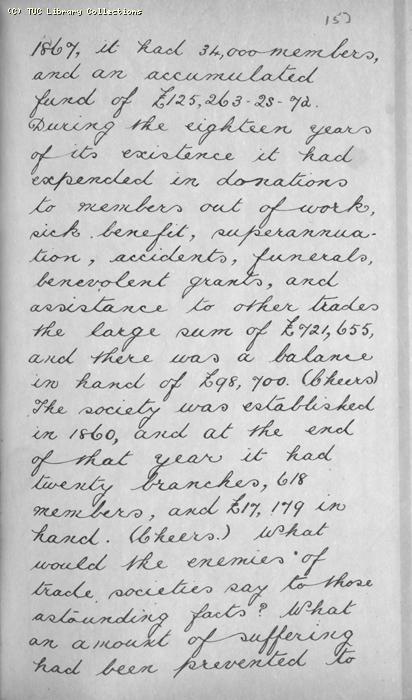 (C) TUC Library Collections
15)
1867, it had 34,000 members,
and an accumulated
fund of £125,263-2s-7d.
During the eighteen years
of its existence it had
expended in donations
to members out of work,
sick benefit, superannua-
tion, accidents, funerals,
benevolent grants, and
assistance to other trades
the large sum of £721,655,
and there was a balance
in hand of £98,700. (Cheers)
The society was established
in 1860, and at the end
of that year it had
twenty branches, 618
members, and £17,179 in
hand. (Cheers.) What
would the enemies of
trade societies say to those
astounding facts? What
an amount of suffering
had been prevented to